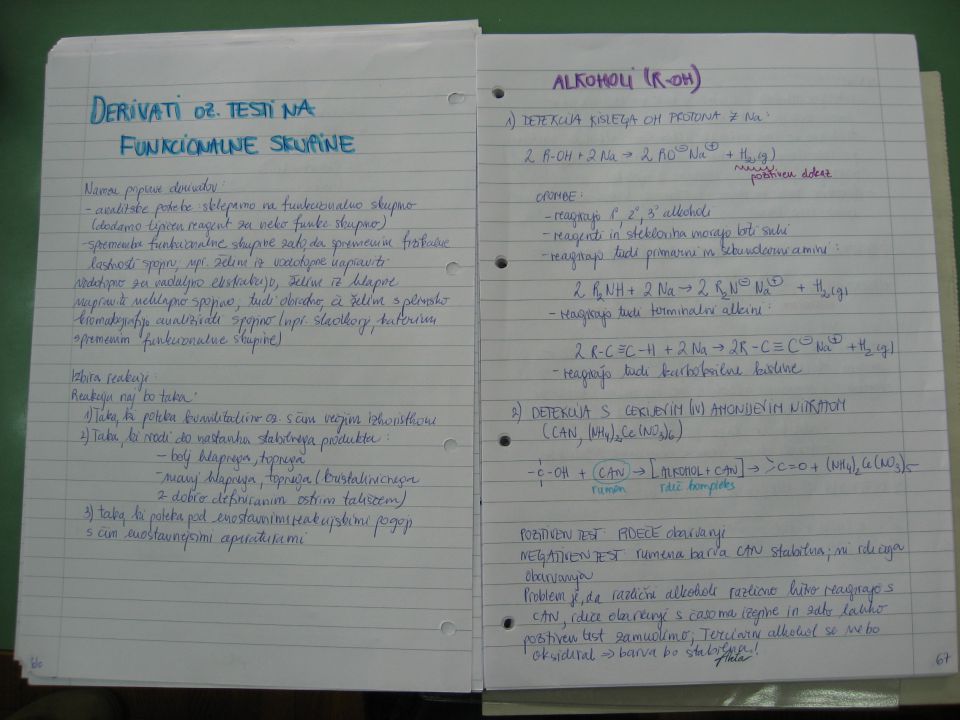 DERIVATI OZ. TESTI NA
FUNKCIONALNE SKUPINE
Namen priprave derivatov:
- analitske potrebe: sklepamo na funkcionalno skupino
(dodamo tipičen reagent za neko funkc skupino)
- sprememba funkcionalne skupine zato, da spremenim fizikalne
lastnosti spojin, npr. želim iz vodotopne napraviti
vodotopno za nadaljno ekstrakcijo, želim iz hlapne
napraviti nehlapno spojino, tudi obratno, če želim s plinsko
kromatografijo analizirati spojino (npr. sladkorji, katerim
spremenim funkcionalne skupine)
Izbira reakcije:
Reakcija naj bo taka:
1) Taka, ki poteka kvantitativno oz. s čim večjim izkoristkom
2) Taka, ki vodi do nastanka stabilnega produkta:
- bolj hlapnega, topnega
- manj hlapnega, topnega (kristaliničnega
z dobro definiranim ostrim tališčem)
3) taka, ki poteka pod enostavnimi reakcijskimi pogoji
s čim enostavnejšimi aparaturami
66
ALKOHOLI (R-OH)
1) DETEKCIJA KISLEGA OH PROTONA Z Na:
2 R-OH + 2 Na → 2 RO⊖Na⊕ + H2(g)
pozitiven dokaz
OPOMBE:
- reagirajo 1°, 2°, 3° alkoholi
- reagenti in steklovina morajo biti suhi
- reagirajo tudi primarni in sekundarni amini:
2 R2NH + 2 Na → 2 R2N⊖Na⊕ + H2(g)
- reagirajo tudi terminalni alkini:
2 R-C≡C-H + 2 Na → 2R-C≡C⊖Na⊕ + H2(g)
- reagirajo tudi karboksilne kisline
2) DETEKCIJA S CERIJEVIM (IV) AMONIJEVIM NITRATOM
(CAN, (NH4)2Ce(NO3)6)
-C-OH + CAN → [ALKOHOL + CAN] → >C=O + (NH4)2Ce(NO3)5
rumen rdeč kompleks
POZITIVEN TEST: RDEČE obarvanje
NEGATIVEN TEST: rumena barva CAN stabilna; ni rdečega
obarvanja
Problem je, da različni alkoholi različno hitro reagirajo s
CAN, rdeče obarvanje s časoma izgine in zato lahko
pozitiven test zamudimo; Terciarni alkohol se nebo
oksidiral ⇒ barva bo stabilna!
67